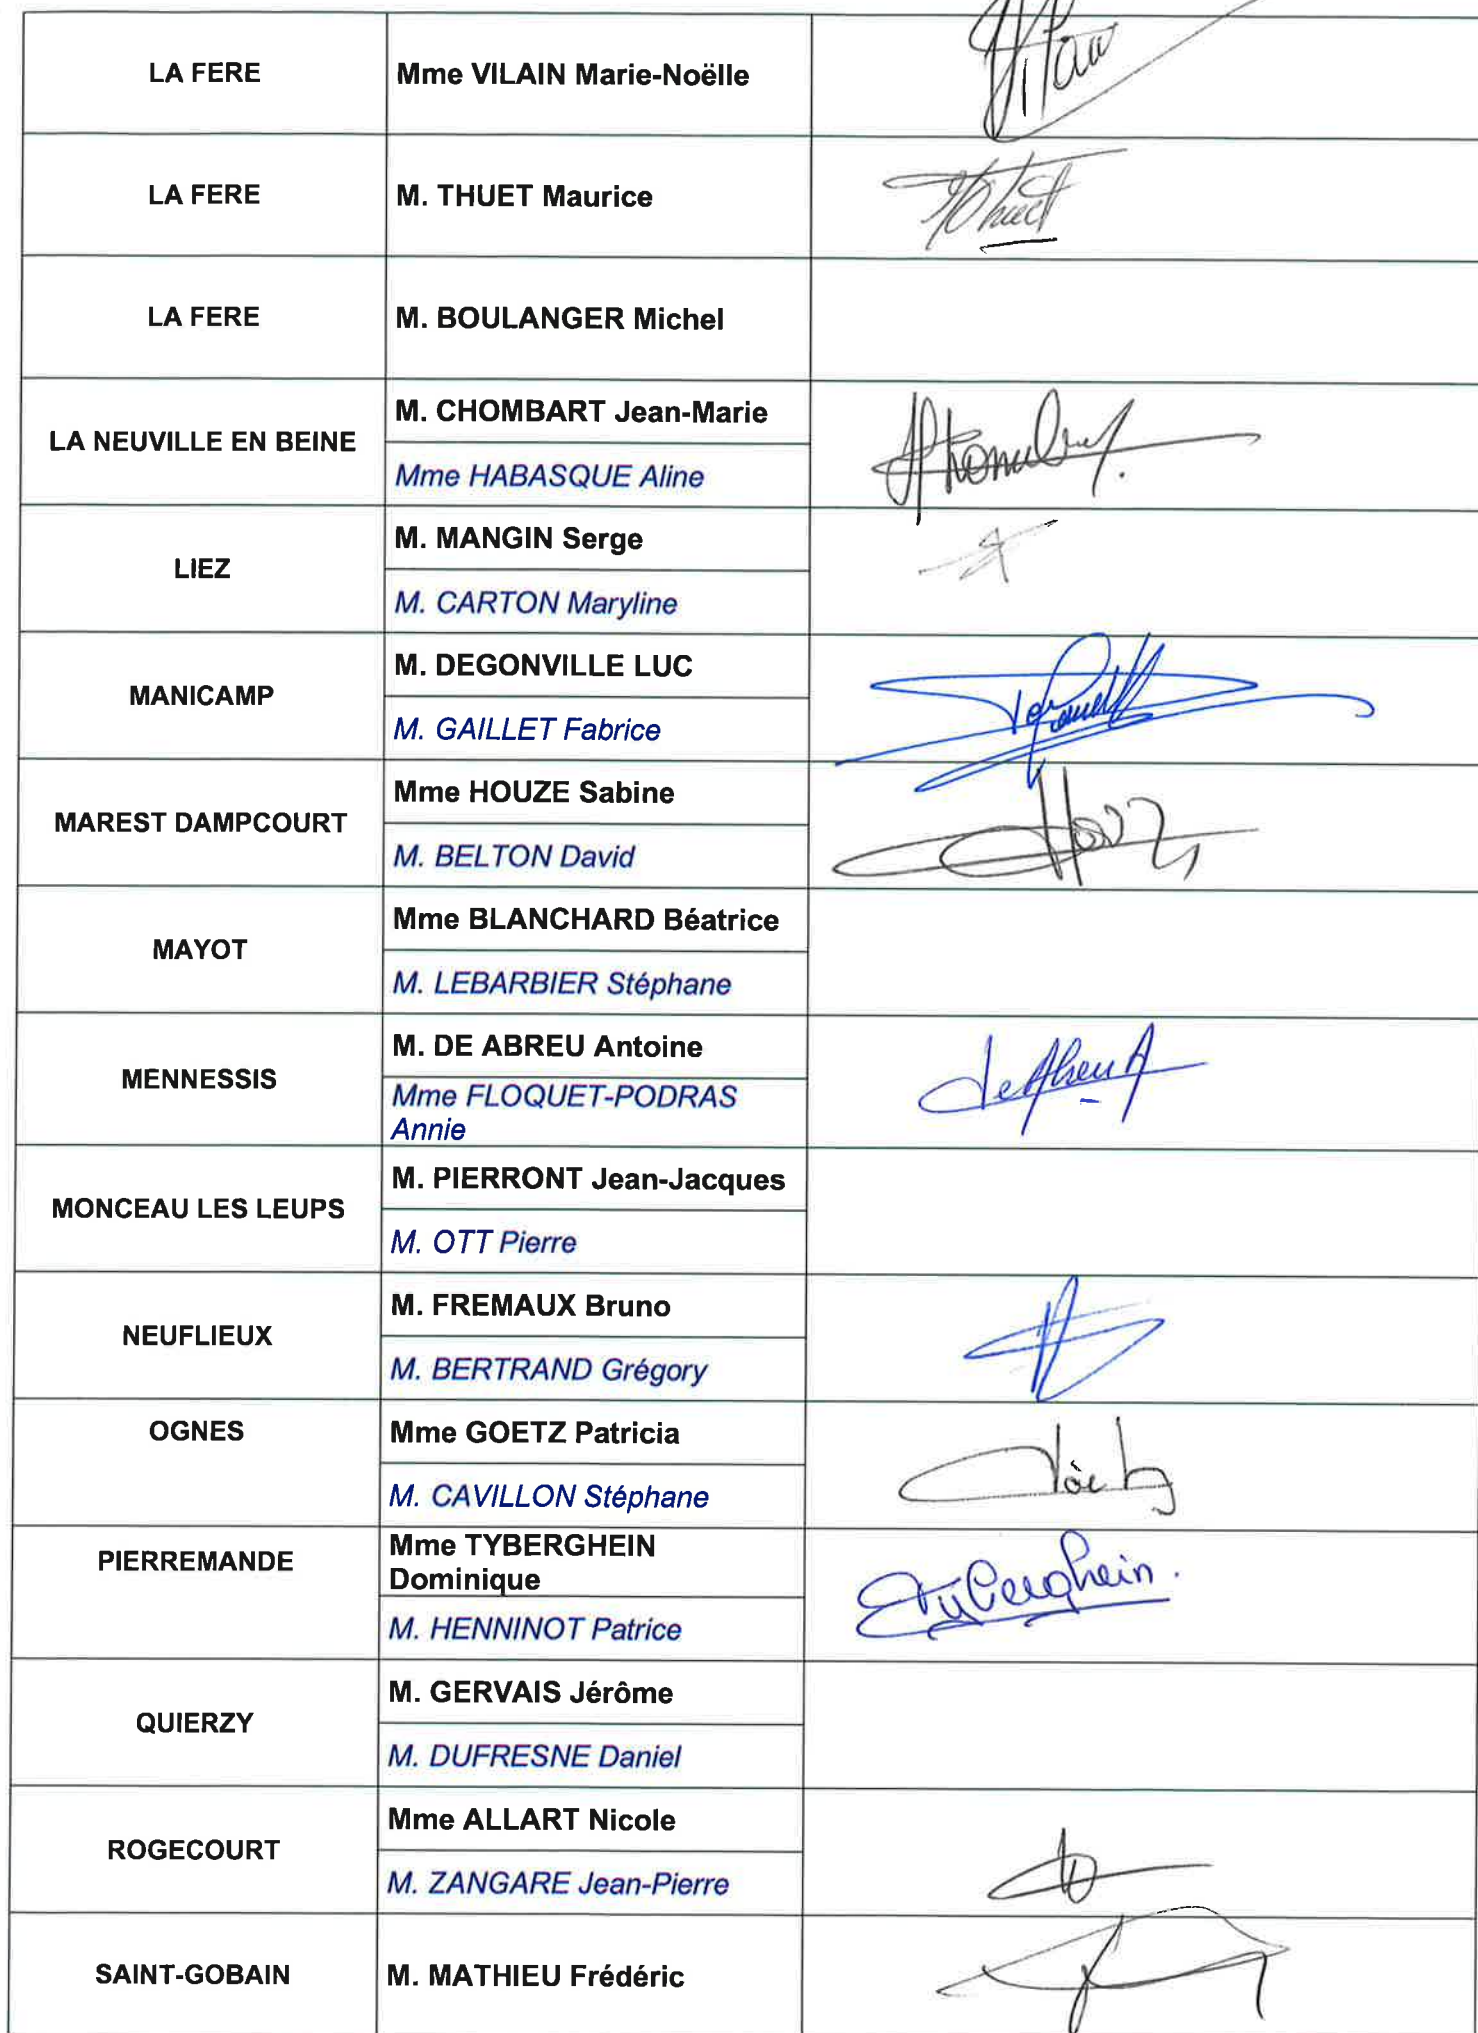 LA FERE
Mme VILAIN Marie-Noëlle
LA FERE
M. THUET Maurice
Thuet
LA FERE
M. BOULANGER Michel
LA NEUVILLE EN BEINE
M. CHOMBART Jean-Marie
Mme HABASQUE Aline
LIEZ
M. MANGIN Serge
M. CARTON Maryline
MANICAMP
M. DEGONVILLE LUC
M. GAILLET Fabrice
MAREST DAMPCOURT
Mme HOUZE Sabine
M. BELTON David
MAYOT
Mme BLANCHARD Béatrice
M. LEBARBIER Stéphane
MENNESSIS
M. DE ABREU Antoine
Mme FLOQUET-PODRAS
Annie
De Abreu A
MONCEAU LES LEUPS
M. PIERRONT Jean-Jacques
M. OTT Pierre
NEUFLIEUX
M. FREMAUX Bruno
M. BERTRAND Grégory
OGNES
Mme GOETZ Patricia
M. CAVILLON Stéphane
PIERREMANDE
Mme TYBERGHEIN
Dominique
M. HENNINOT Patrice
Tyberghein.
QUIERZY
M. GERVAIS Jérôme
M. DUFRESNE Daniel
ROGECOURT
Mme ALLART Nicole
M. ZANGARE Jean-Pierre
SAINT-GOBAIN
M. MATHIEU Frédéric